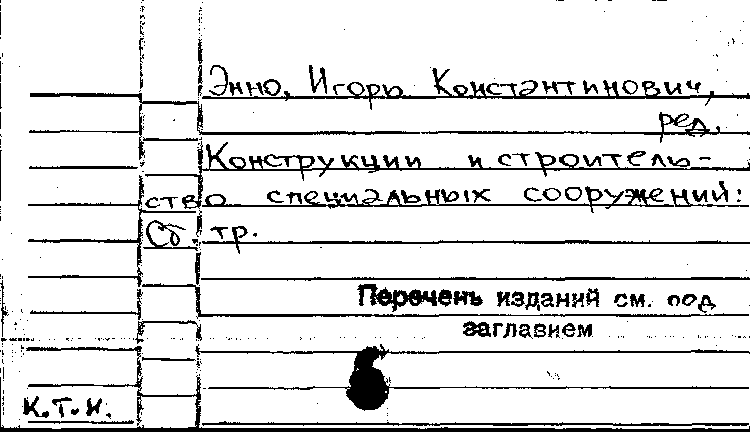 Энно, Игорь Константинович,
ред.
Конструкции и строитель-
ство специальных сооружений:
Сб. тр.
Перечень изданий см. под
заглавием
К.Т.И.